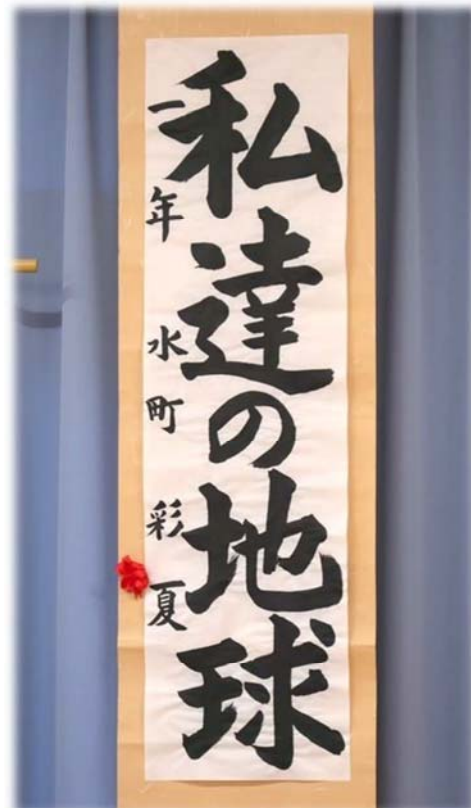 私達の地球
一年 水町 彩夏